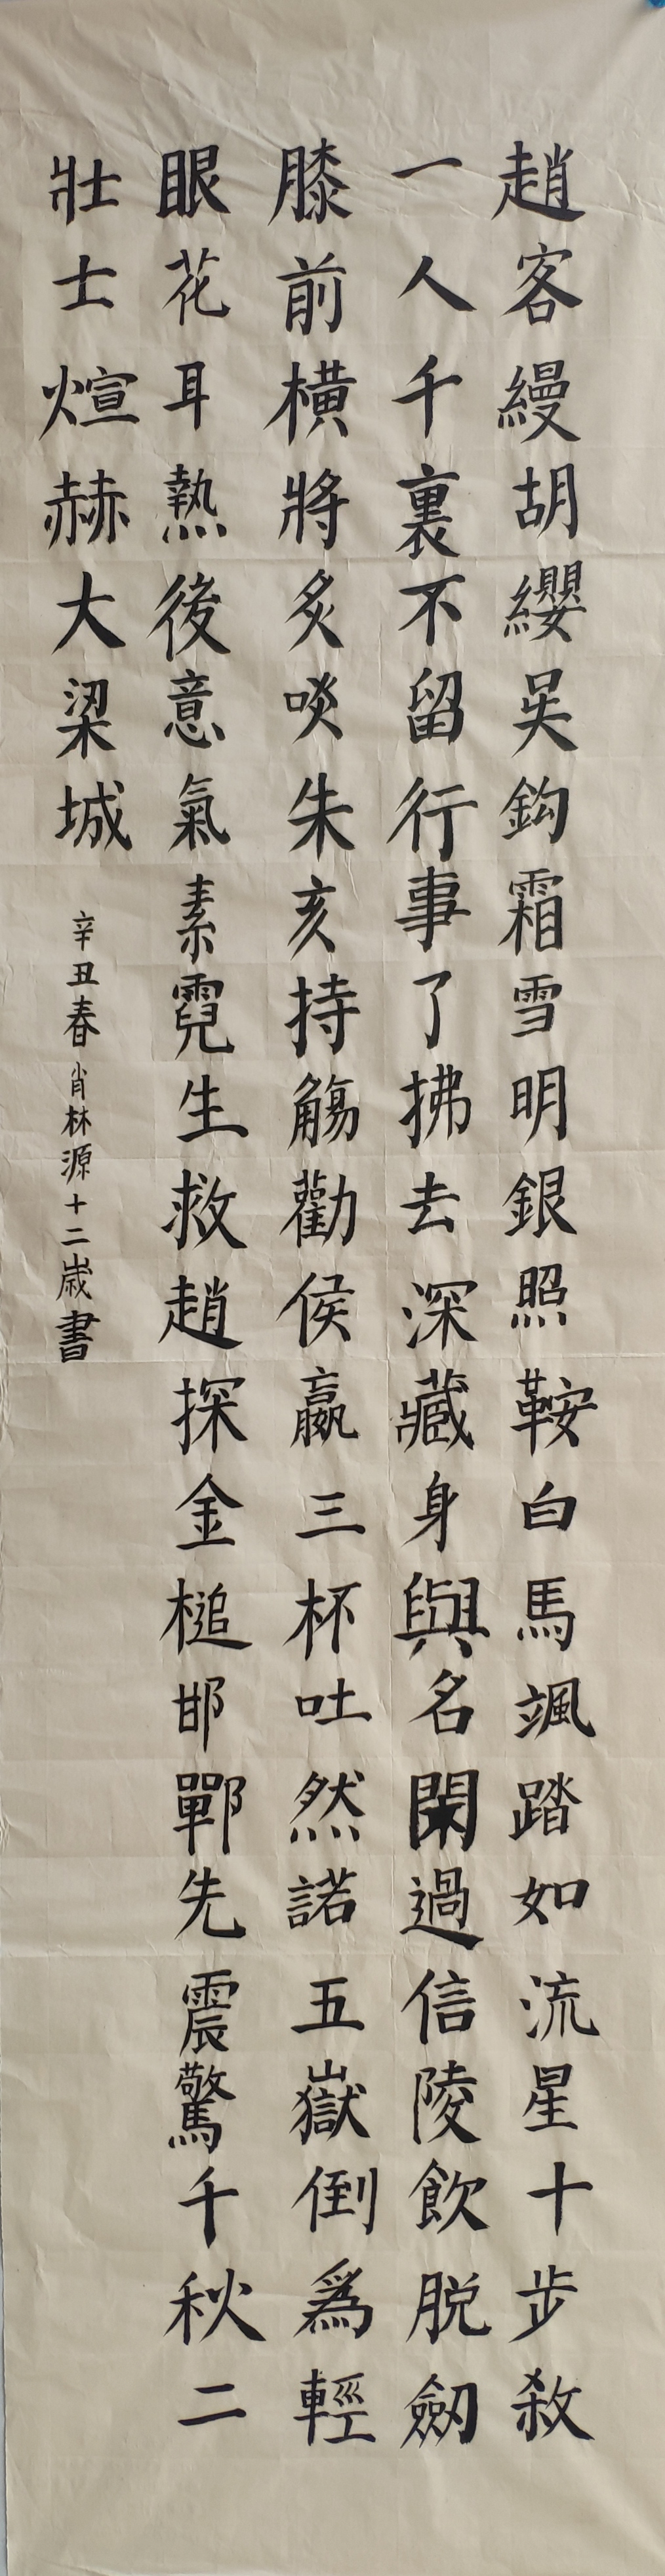 趙客縵胡纓吳鈎霜雪明銀照鞍白馬颯踏如流星十步殺
一人千裏不留行事了拂去深藏身與名閑過信陵飲脱劒
膝前橫將炙啖朱亥持觴勸侯嬴三杯吐然諾五嶽倒爲輕
眼花耳熱後意氣素霓生救趙探金槌邯鄲先震驚千秋二
壯士煊赫大梁城
辛丑春肖林源十二歲書